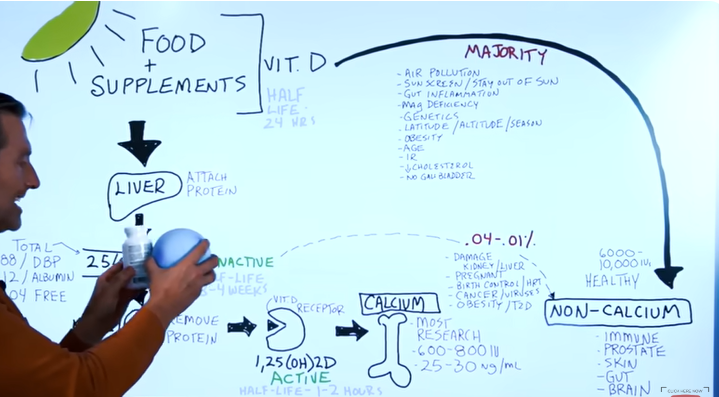 FOOD
+
SUPPLEMENTS
VIT. D
HALF
LIFE-
24 HRS
MAJORITY
- AIR POLLUTION
- SUNSCREEN / STAY OUT OF SUN
- GUT INFLAMMATION
- MAG DEFICIENCY
- GENETICS
- LATITUDE / ALTITUDE / SEASON
- OBESITY
- AGE
- IR
- ↓CHOLESTEROL
- NO GALLBLADDER
LIVER
ATTACH
PROTEIN
TOTAL
88 / DBP
12 / ALBUMIN
04 FREE
25(
NACTIVE
LF-LIFE
3-4 WEEKS
REMOVE
PROTEIN
VIT D
RECEPTOR
1,25(OH)2D
ACTIVE
HALF-LIFE - 1-2 HOURS
CALCIUM
- MOST
RESEARCH
- 600-800 IU
- 25-30 ng/mL
.04-.01%
- DAMAGE
KIDNEY/LIVER
- PREGNANT
- BIRTH CONTROL / HRT
- CANCER/VIRUSES
- OBESITY / T2D
6000-
10,000 IU
HEALTHY
NON-CALCIUM
- IMMUNE
- PROSTATE
- SKIN
- GUT
- BRAIN